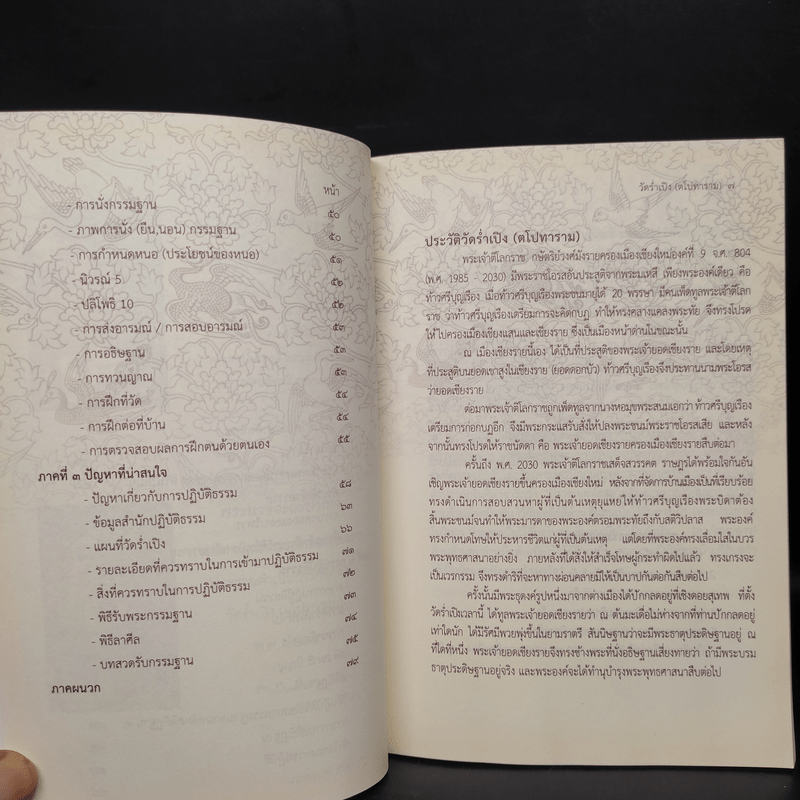 หน้า
- การนั่งกรรมฐาน ๕๐
- ภาพการนั่ง (ยืน,นอน) กรรมฐาน ๕๐
- การกำหนดหนอ (ประโยชน์ของหนอ) ๕๑
- นิวรณ์ 5 ๕๒
- ปลิโพธิ 10 ๕๒
- การส่งอารมณ์ / การสอบอารมณ์ ๕๓
- การอธิษฐาน ๕๓
- การทวนญาณ ๕๓
- การฝึกที่วัด ๕๔
- การฝึกต่อที่บ้าน ๕๔
- การตรวจสอบผลการฝึกตนด้วยตนเอง ๕๕
ภาคที่ ๓ ปัญหาที่น่าสนใจ
- ปัญหาเกี่ยวกับการปฏิบัติธรรม ๕๘
- ข้อมูลสำนักปฏิบัติธรรม ๖๓
- แผนที่วัดร่ำเปิง ๖๖
- รายละเอียดที่ควรทราบในการเข้ามาปฏิบัติธรรม ๗๑
- สิ่งที่ควรทราบในการปฏิบัติธรรม ๗๒
- พิธีรับพระกรรมฐาน ๗๓
- พิธีลาศีล ๗๔
- บทสวดรับกรรมฐาน ๗๕
ภาคผนวก ๗๙
วัดร่ำเปิง (ตโปทาราม) ๗
ประวัติวัดร่ำเปิง (ตโปทาราม)
พระเจ้าติโลกราช กษัตริย์วงศ์มังรายครองเมืองเชียงใหม่องค์ที่ 9 จ.ศ. 804
(พ.ศ. 1985 - 2030) มีพระราชโอรสอันประสูติจากพระมเหสี เพียงพระองค์เดียว คือ
ท้าวศรีบุญเรือง เมื่อท้าวศรีบุญเรืองพระชนมายุได้ 20 พรรษา มีคนเพ็ดทูลพระเจ้าติโลก
ราช ว่าท้าวศรีบุญเรืองเตรียมการจะคิดกบฏ ทำให้ทรงคลางแคลงพระทัย จึงโปรด
ให้ไปครองเมืองเชียงแสนและเชียงราย ซึ่งเป็นเมืองหน้าด่านในขณะนั้น
ณ เมืองเชียงรายนี้เอง ได้เป็นที่ประสูติของพระเจ้ายอดเชียงราย และโดยเหตุ
ที่ประสูติบนยอดเขาสูงในเชียงราย (ยอดดอกบัว) ท้าวศรีบุญเรืองจึงประทานนามพระโอรส
ว่ายอดเชียงราย
ต่อมาพระเจ้าติโลกราชถูกเพ็ดทูลจากนางหอมุขพระสนมเอกว่า ท้าวศรีบุญเรือง
เตรียมการก่อกบฏอีก จึงมีพระกระแสรับสั่งให้ปลงพระชนม์พระราชโอรสเสีย และหลัง
จากนั้นทรงโปรดให้ราชนัดดา คือ พระเจ้ายอดเชียงรายครองเมืองเชียงรายสืบต่อมา
ครั้นถึง พ.ศ. 2030 พระเจ้าติโลกราชเสด็จสวรรคต ราษฎรได้พร้อมใจกันอัน
เชิญพระเจ้ายอดเชียงรายขึ้นครองเมืองเชียงใหม่ หลังจากที่จัดการบ้านเมืองเป็นที่เรียบร้อย
ทรงดำเนินการสอบสวนหาผู้ที่เป็นต้นเหตุยุแหย่ให้ท้าวศรีบุญเรืองพระบิดาต้อง
สิ้นพระชนม์จนทำให้พระมารดาของพระองค์ตรอมพระทัยถึงกับสติวิปลาส พระองค์
ทรงกำหนดโทษให้ประหารชีวิตแก่ผู้ที่เป็นต้นเหตุ แต่โดยที่พระองค์ทรงเลื่อมใสในบวร
พระพุทธศาสนาอย่างยิ่ง ภายหลังที่ได้สั่งให้สำเร็จโทษผู้กระทำผิดไปแล้ว ทรงเกรงจะ
เป็นเวรกรรม จึงทรงดำริที่จะหาทางผ่อนคลายมิให้เป็นบาปกันต่อกันสืบต่อไป
ครั้งนั้นมีพระธุดงค์รูปหนึ่งมาจากต่างเมืองได้ปักกลดอยู่ที่เชิงดอยสุเทพ ที่ตั้ง
วัดร่ำเปิงเวลานี้ ได้ทูลพระเจ้ายอดเชียงรายว่า ณ ต้นมะเดื่อไม่ห่างจากที่ท่านปักกลดอยู่
เท่าใดนัก ได้มีรัศมีพวยพุ่งขึ้นในยามราตรี สันนิษฐานว่าจะมีพระธาตุประดิษฐานอยู่ ณ
ที่ใดที่หนึ่ง พระเจ้ายอดเชียงรายจึงทรงช้างพระที่นั่งอธิษฐานเสี่ยงทายว่า ถ้ามีพระบรม
ธาตุประดิษฐานอยู่จริง และพระองค์จะได้ทำนุบำรุงพระพุทธศาสนาสืบต่อไป